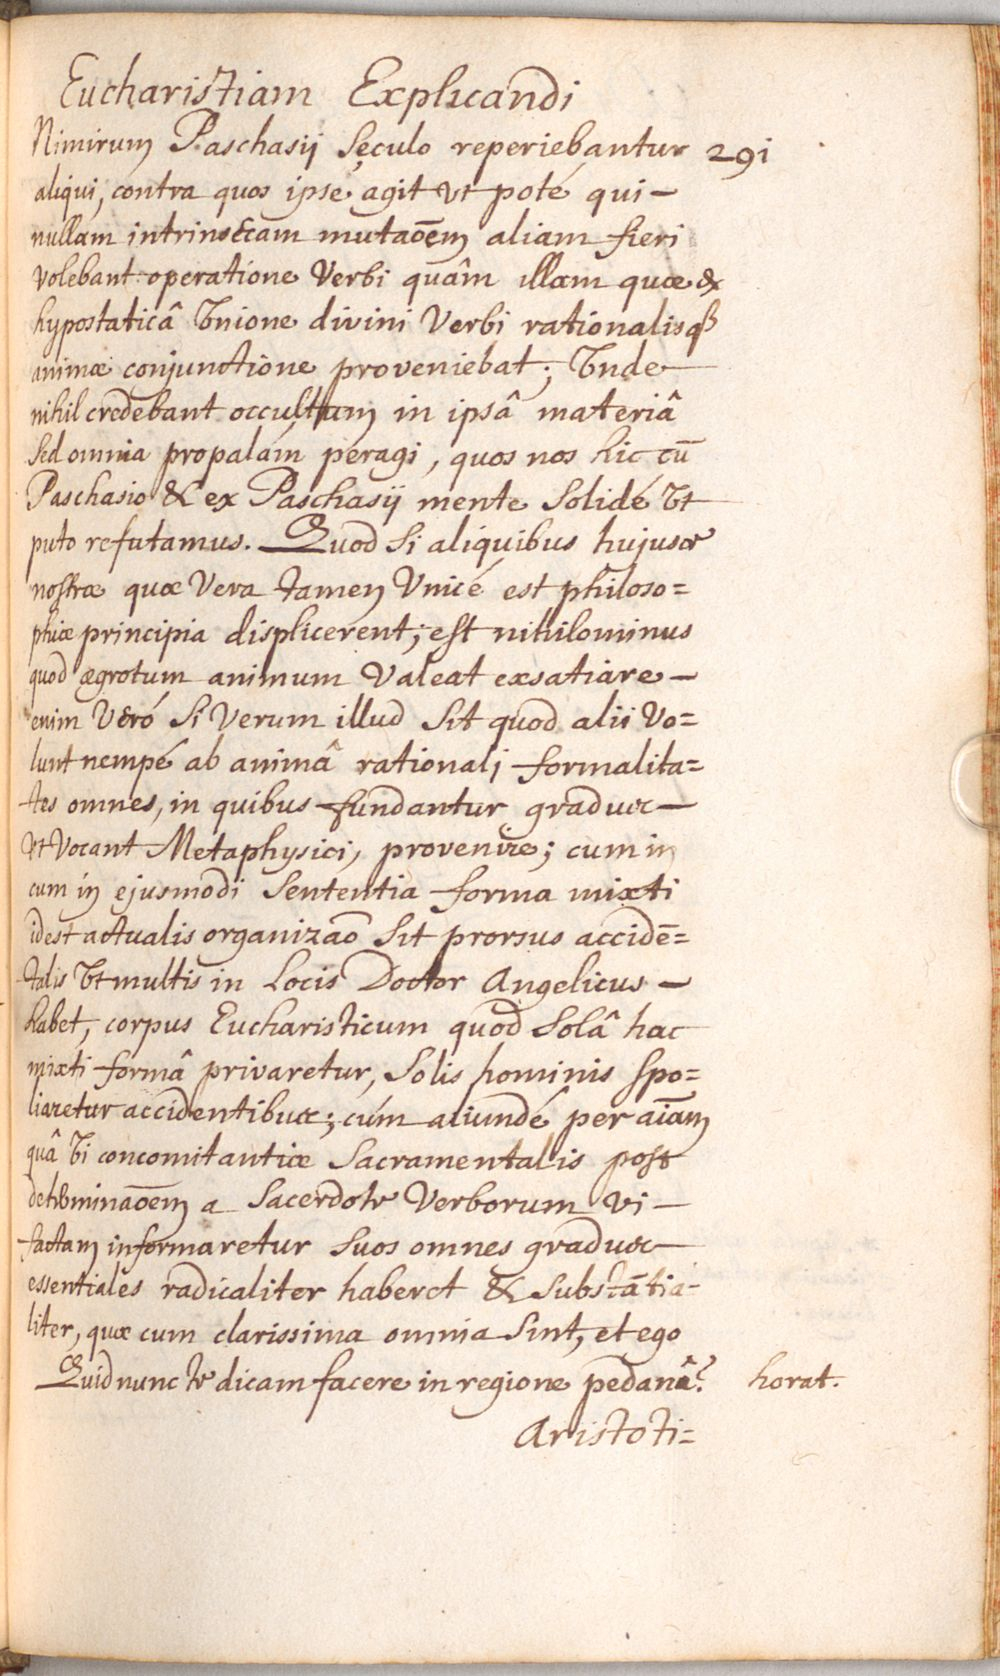 Eucharistiam Explicandi
Nimirum Paschasij seculo reperiebantur 291
aliqui, contra quos ipse agit ut poté qui-
nullam intrinsecam mutaōem aliam fieri
volebant operatione Verbi quâm illam quæ ex
hypostaticâ Unione divini Verbi rationalisqȝ
animæ conjunctione proveniebat; Unde
nihil credebant occultum in ipsâ materiâ
sed omnia propalám peragi, quos nos hic cū
Paschasio & ex Paschasij mente Solidé Ut
puto refutamus. Quod Si aliquibus hujusce
nostræ quæ Vera tamen Unicé est philoso=
phiæ principia displicerent; est nihilominus
quod ægrotum animum Valeat exsatiare -
enim Veró Si Verum illud Sit quod alii Vo=
lunt nempé ab animâ rationali formalita=
tes omnes, in quibus fundantur gradus
Ut Vocant Metaphysici, provenire; cum in
cum in ejusmodi Sententia forma mixti
idest actualis organizaō Sit prorsus accidē=
talis Ut multis in Locis Doctor Angelicus -
habet, corpus Eucharisticum quod Solâ hac
mixti formâ privaretur, Solis hominis Spo=
liaretur accidentibus; cúm aliundé per aīam
quâ Vi concomitantiæ Sacramentalis post
determinaōem a Sacerdote Verborum Vi -
factam informaretur Suos omnes gradus
essentiales radicaliter haberet & Substātia=
liter, quæ cum clarissima omnia Sint, et ego
Quid nunc te dicam facere in regione pedanâ? horat.
Aristoti=